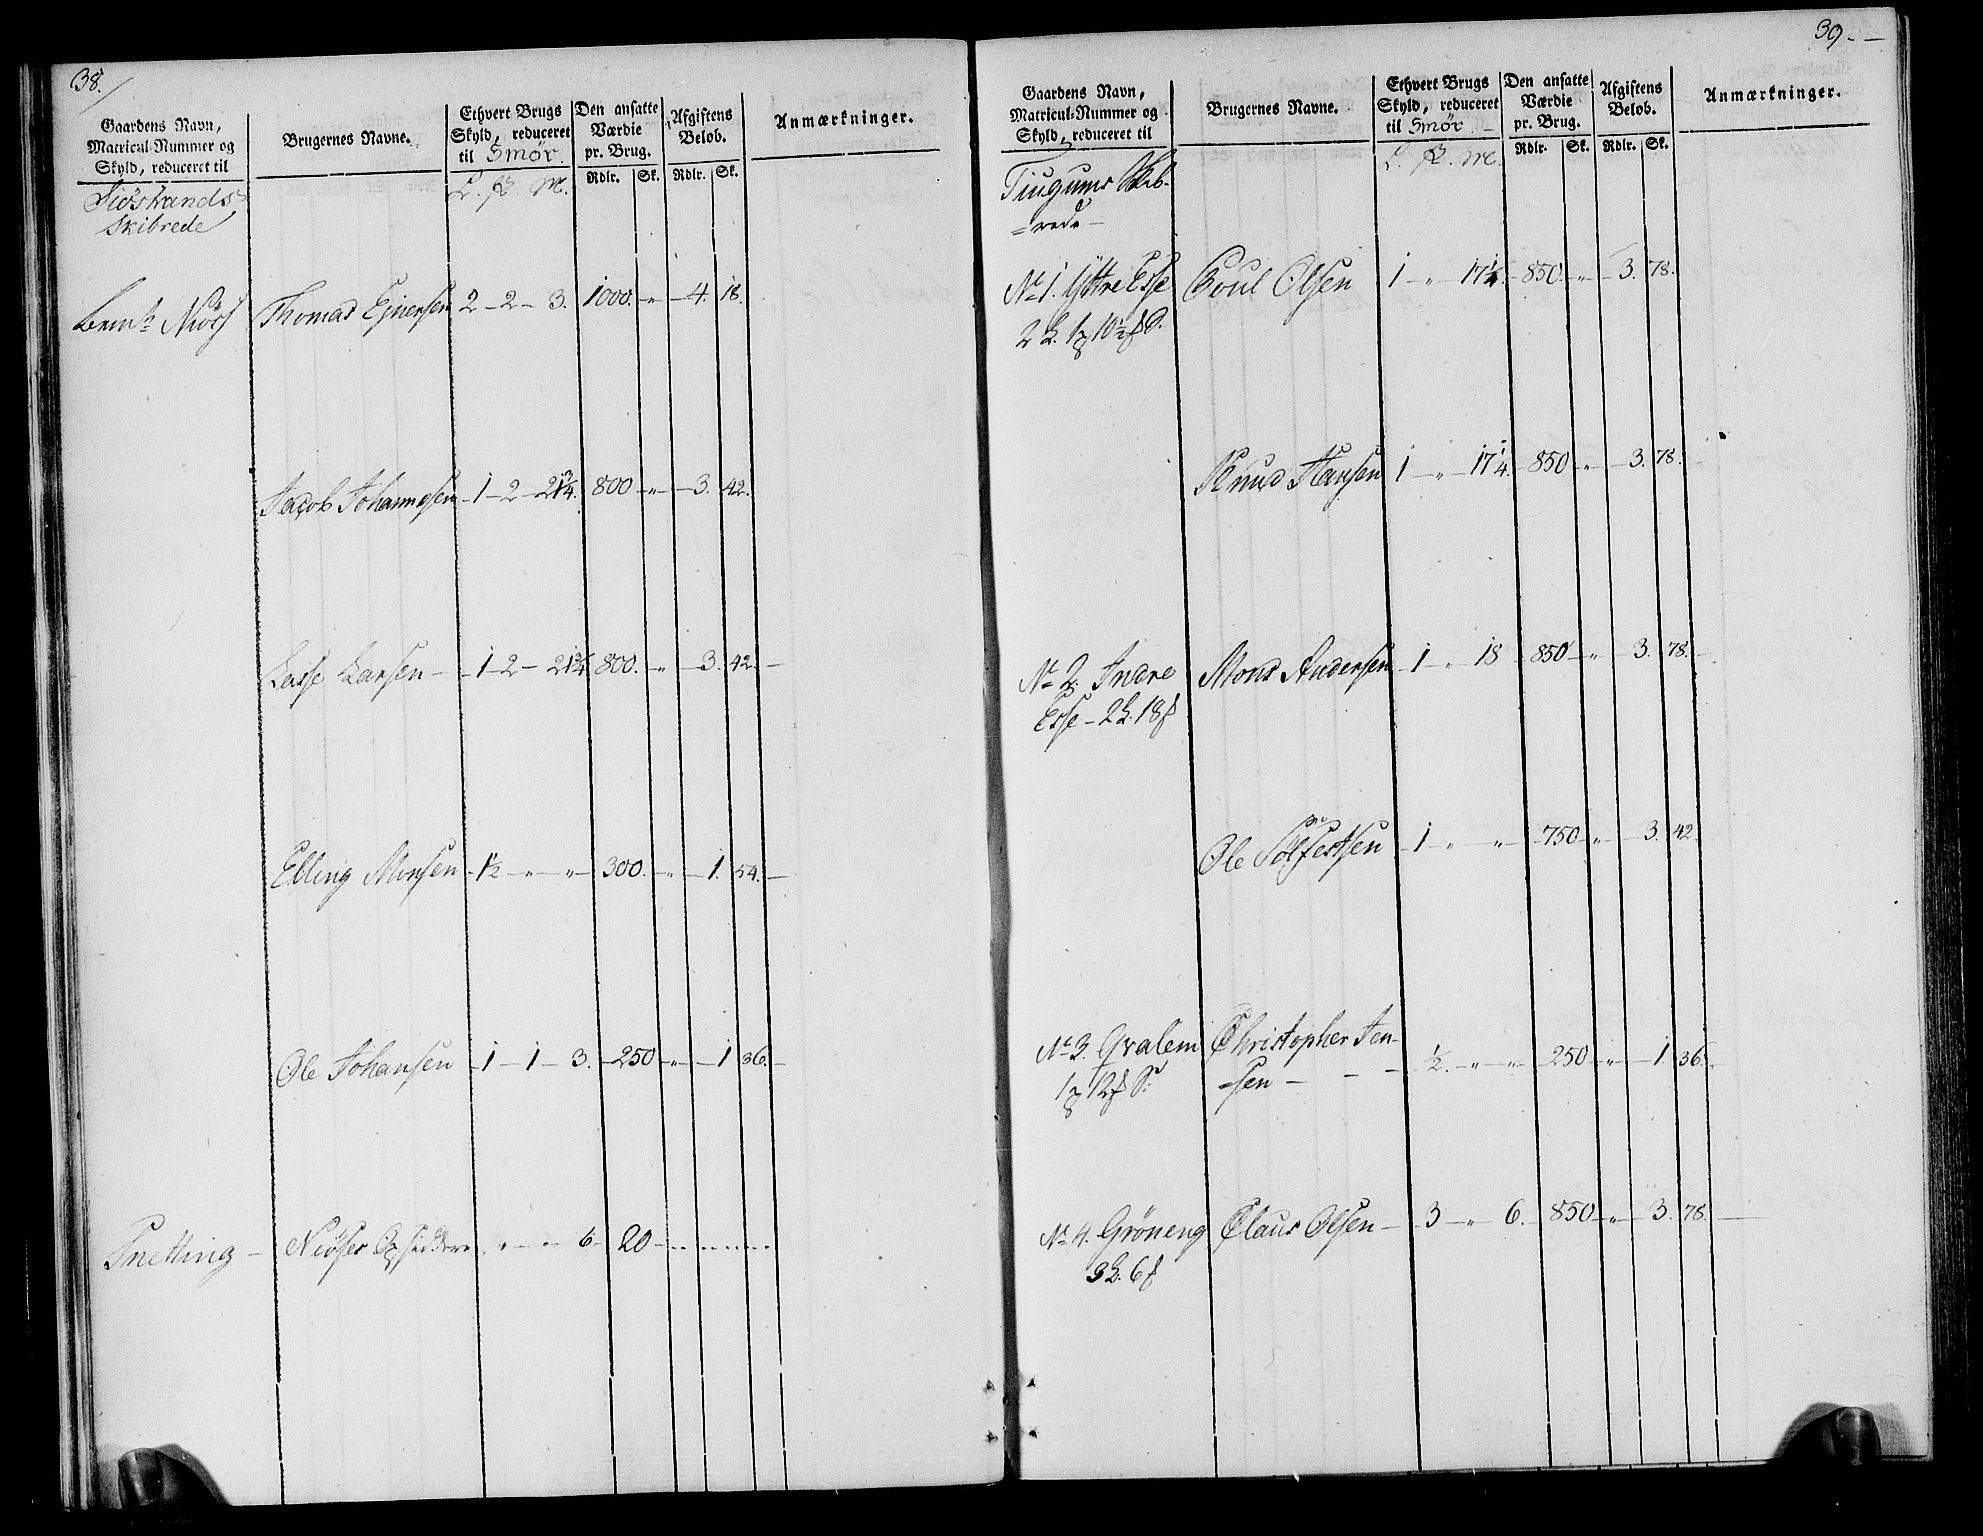 38.
Gaardens Navn,
Matricul-Nummer og
Skyld, reduceret til
Brugernes Navne.
Ethvert Brugs
Skyld, reduceret
til Smør.
Den ansatte
Værdie
pr. Brug.
Rdlr. Sk.
Afgiftens
Beløb.
Rdlr. Sk.
Anmærkninger.
L. M.
Siöstrands
Skibrede
Niös Thomas Ejnersen 2 - 2 - 3. 1000. „ 4. 18.
Jacob Johannesen 1 - 2 - 21 3/4. 800 „ 3. 42.
Lasse Larsen 1 - 2 - 21 3/4 800. „ 3. 42.
Elling Monsen 1/2 „ „ 300. „ 1. 54.
Ole Johansen 1 - 1 - 3. 250 „ 1 36.
Snetting Niöser Opsiddere „ „ 6 20
39.
Gaardens Navn,
Matricul-Nummer og
Skyld, reduceret til
Brugernes Navne.
Ethvert Brugs
Skyld, reduceret
til Smör.
Den ansatte
Værdie
pr. Brug.
Rdlr. Sk.
Afgiftens
Beløb.
Rdlr. Sk.
Anmærkninger.
L. M.
Tiugums Skib-
=rede
No 1. Yttre Esse Poul Olsen 1 „ 17 1/4. 850. „ 3. 78.
2 L. 1 10 1/2 S.
Knud Hansen 1 „ 17 1/4. 850 „ 3. 78.
No 2. Indre Mons Andersen 1 „ 18 850 „ 3. 78.
Esse - 2 L. 18
Ole Sölfestsen 1 „ „ 750 „ 3. 42
No 3. Qvalem Christopher Jen-
1 12 S. -sen 1/2. „ „ 250 „ 1. 36.
No 4. Gröneng Claus Olsen 3 „ 6. 850 „ 3. 78.
3 L. 6